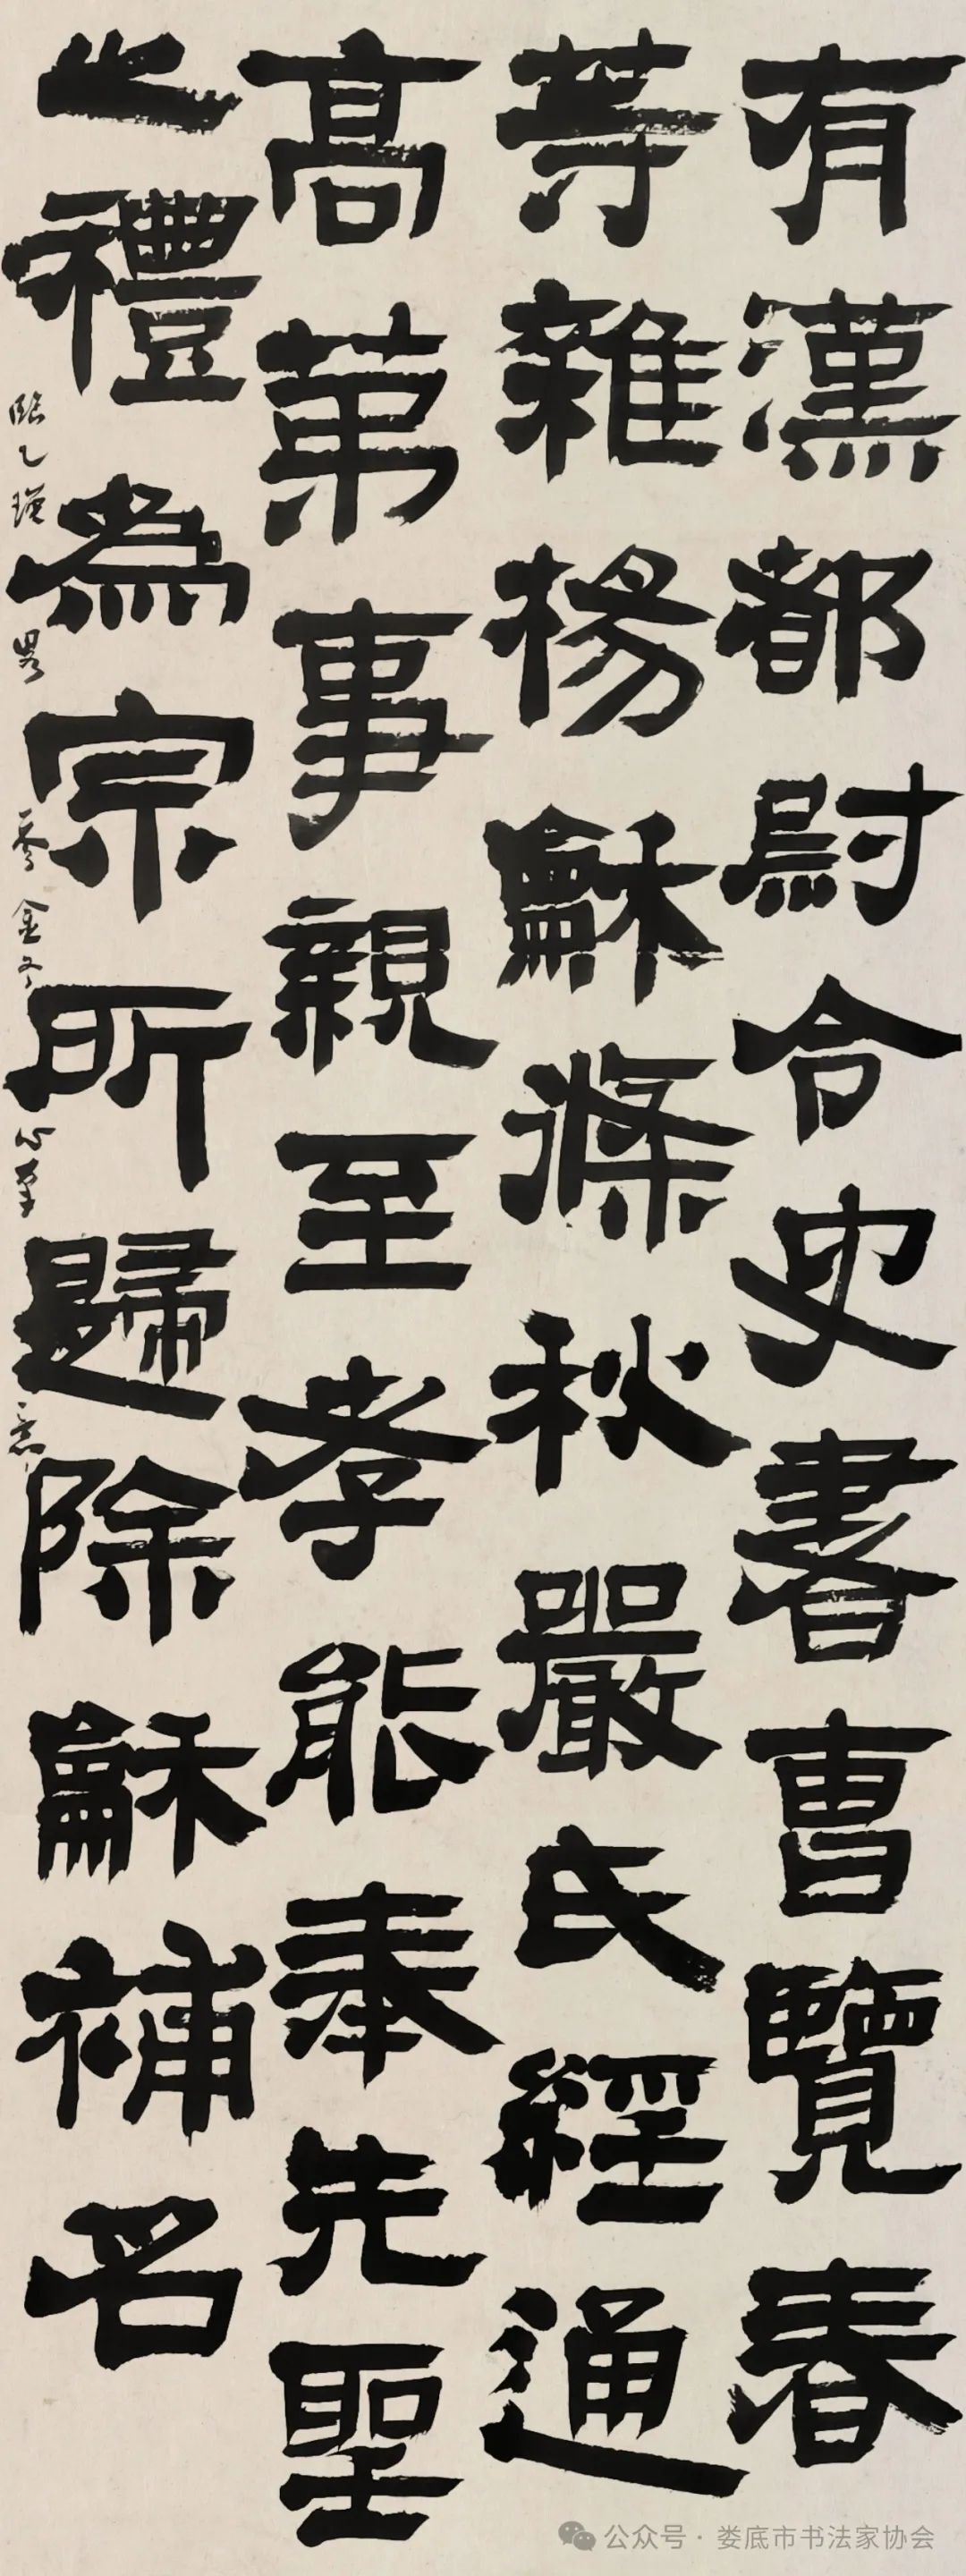 有漢都尉合史書曹覽春
等雜楊龢條秋嚴氏經通
高第事親至孝能奉先聖
之禮為宗所歸除龢補名
臨乙瑛畧參金冬心筆意
公众号·娄底市书法家协会